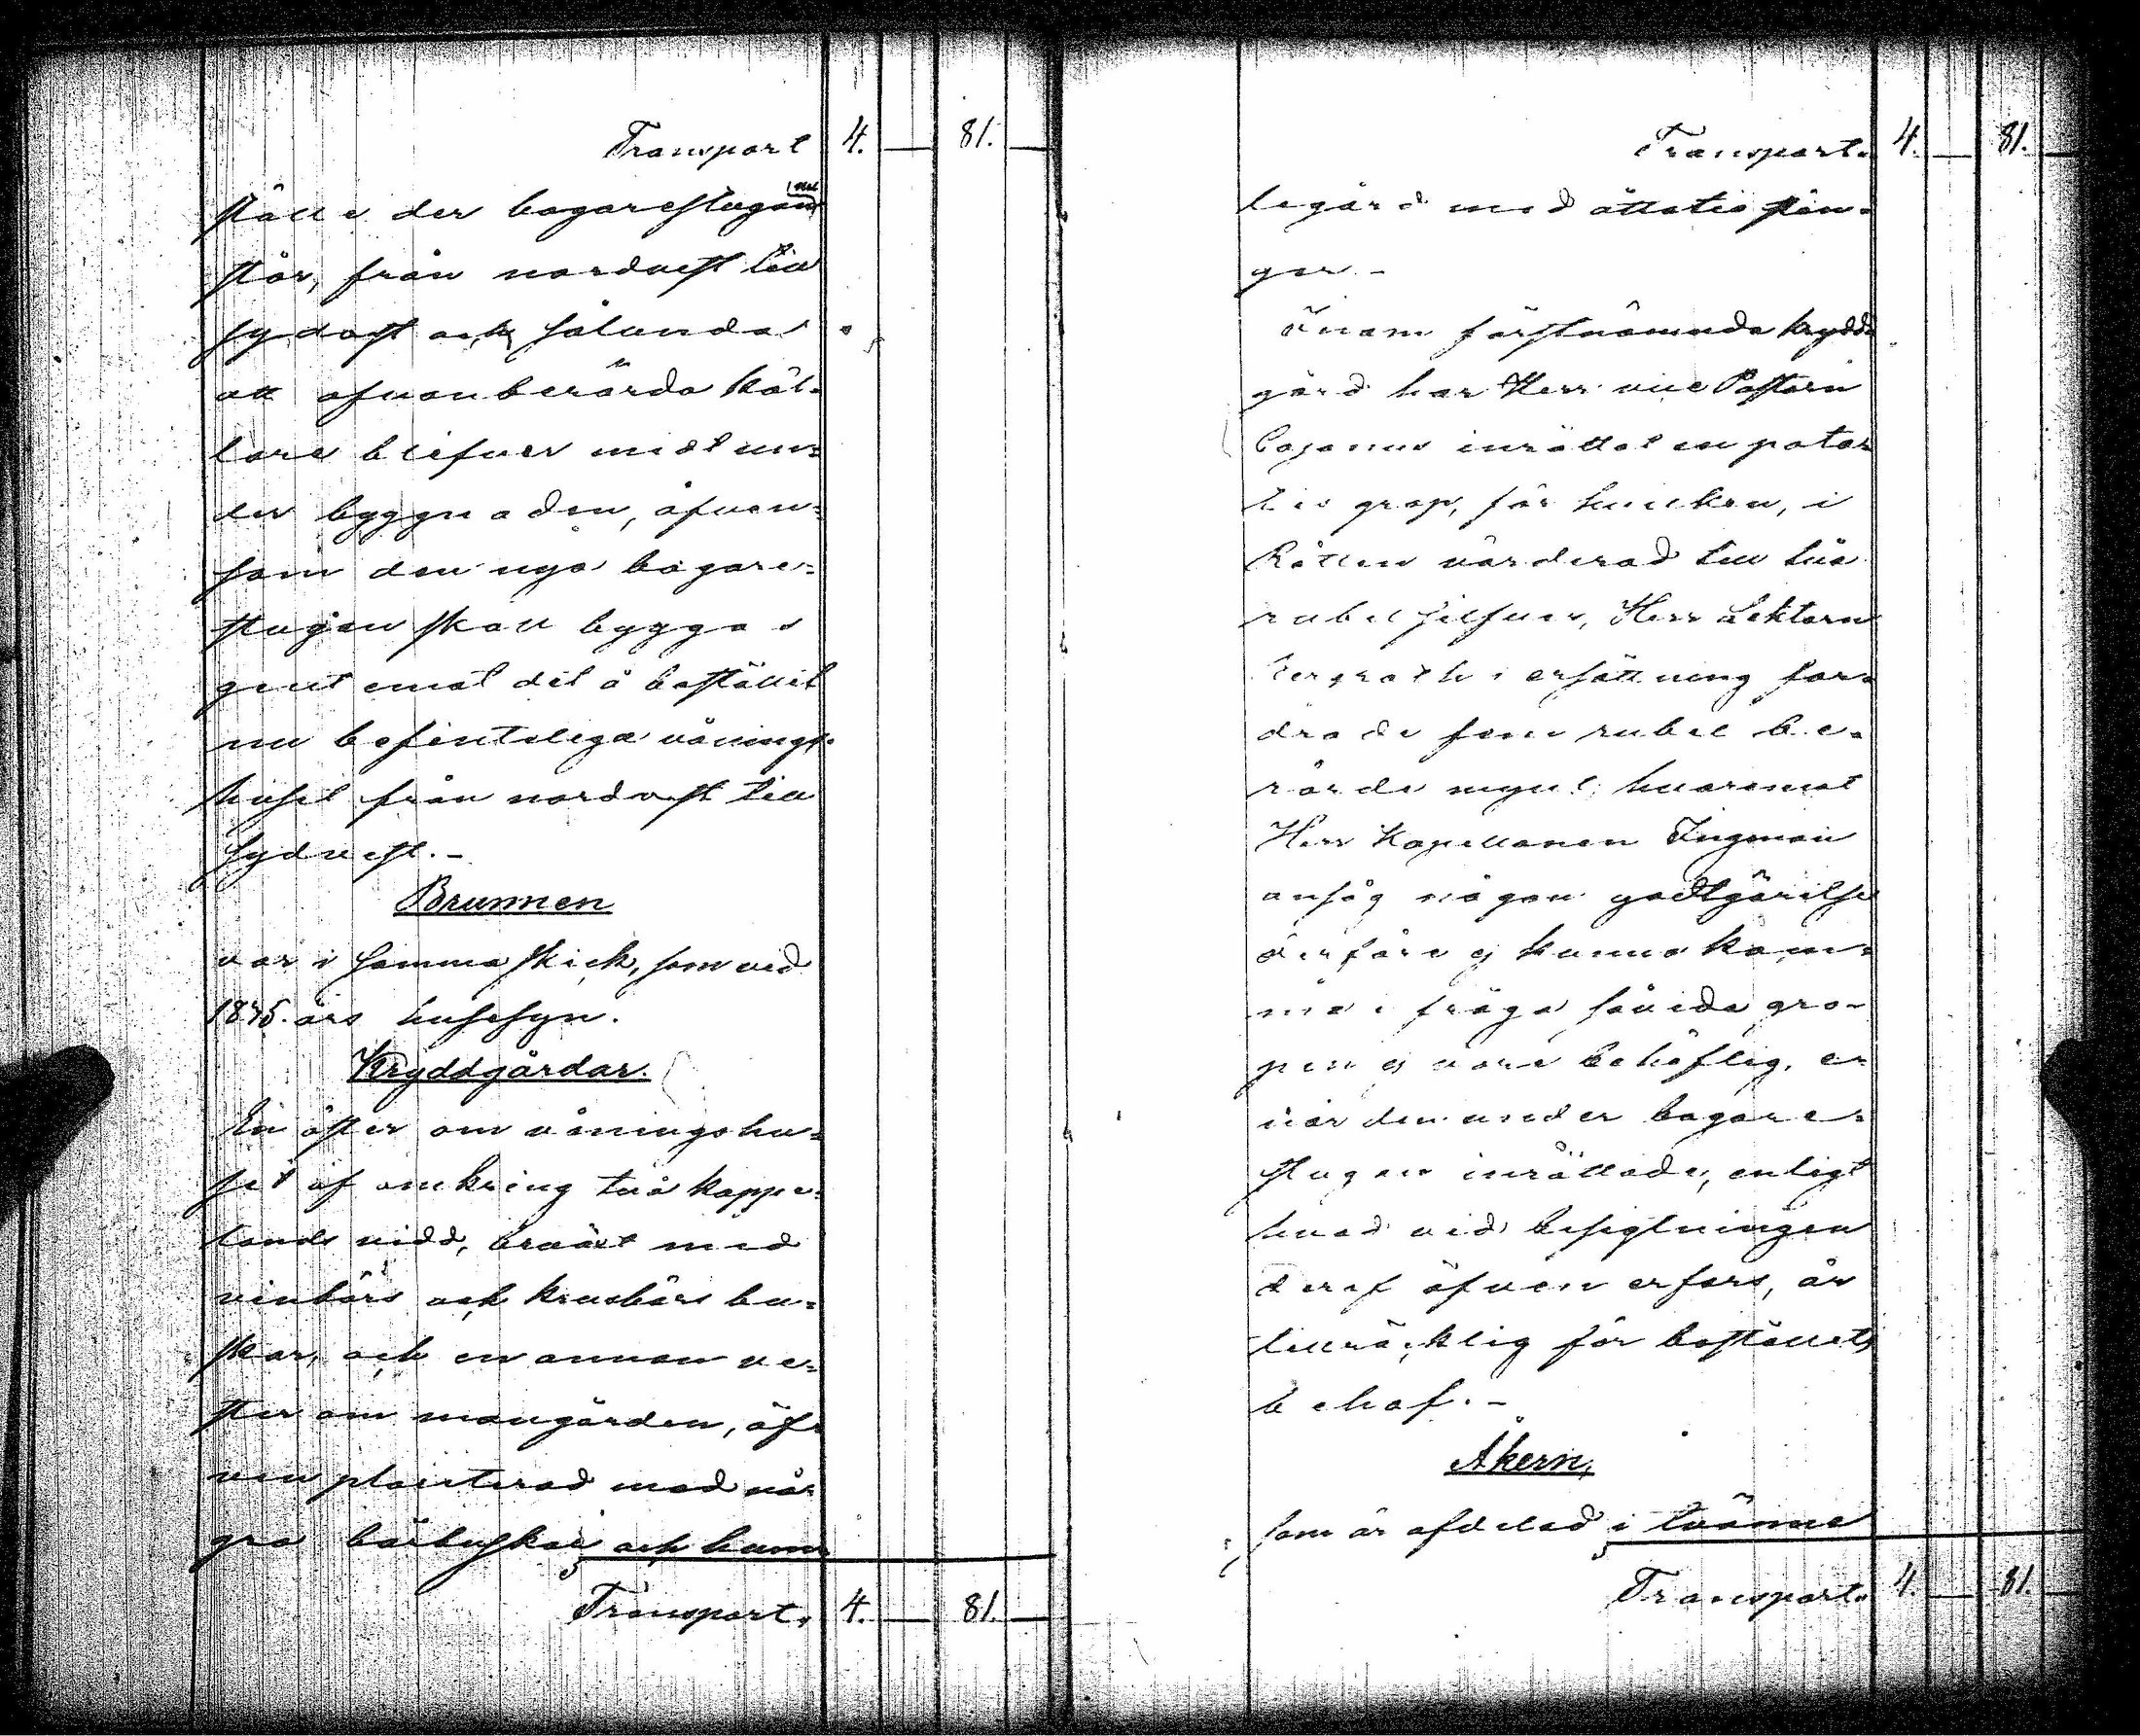 Transport 4. — 81. —
ställe der bagarestugan nu
står, från nordvest till
sydost och sålunda
att ofvanberörda käl-
lare blifver midt un-
der byggnaden, äfven-
som den nya bagare-
stugan skall byggas
gent emot det å bostället
nu befinteliga vånings-
huset från nordost till
sydvest. -
Brunnen
var i samma skick, som vid
1875 års husesyn.
Kryddgårdar.
En öster om våningshu-
set af omkring två kappe-
lands vidd, bevuxt med
vinbärs och krusbärs bu-
skar, och en annan ve-
ster om mangården, äf-
ven planterad med nå-
gra bärbuskar och hum-
Transport. 4. — 81. —
Transport. 4. — 81. —
legård med åttatio stän-
ger. -
Inom förstnämnda krydd-
gård har Herr vice Pastorn
Cajanus inrättat en potä-
tis grop, för hvilken, i
Rätten värderad till tio
rubel silfver, Herr Lektorn
Bergroth i ersättning for-
drade fem rubel be-
rörde mynt, hvaremot
Herr Kapellanen Ingman
ansåg någon godtgörelse
derföre ej kunna kom-
ma i fråga såvida gro-
pen ej vore behöflig, e-
när den under bagare-
stugan inrättade, enligt
hvad vid besigtningen
deraf äfven erfors, är
tillräcklig för boställets
behof. -
Åkern,
som är afdelad i tvänne
Transport. 4. — 81. —